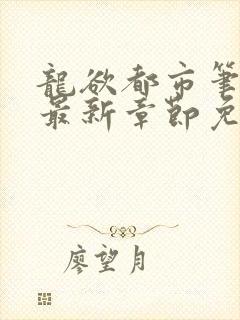 龍欲都市筆
最新章節免
廖望月